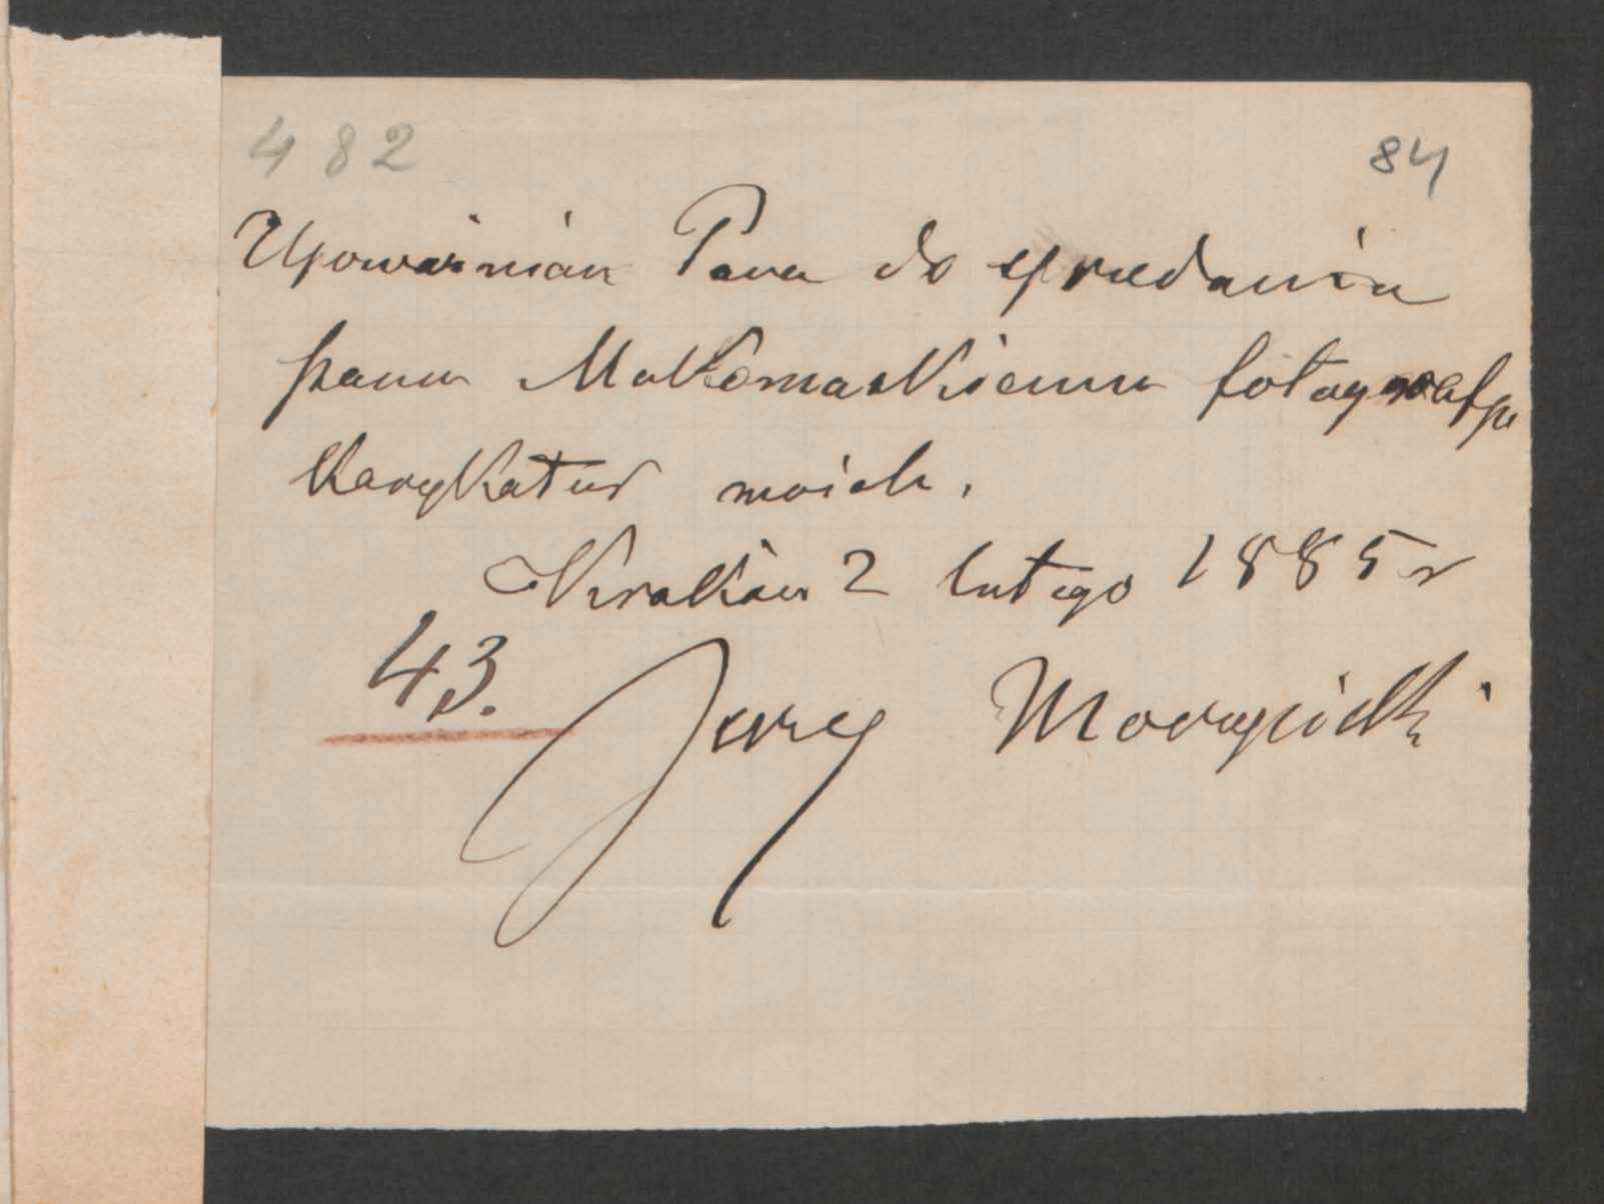 482
84
Upoważniam Pana do sprzedania
panu Makomaskiemu fotografji
karykatur moich.
Kraków 2 lutego 1885 r
43.
Jerzy